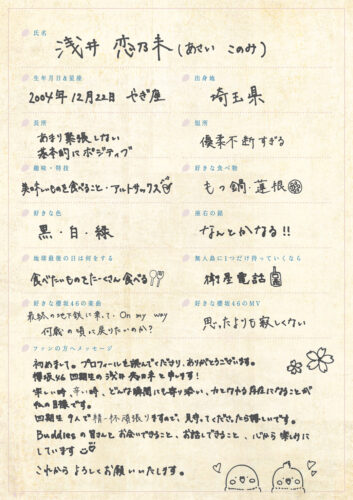 氏名
浅井 恋乃未(あさい このみ)
生年月日&星座
2004年12月22日 やぎ座
出身地
埼玉県
長所
あまり緊張しない
基本的にポジティブ
短所
優柔不断すぎる
趣味・特技
美味いものを食べること・アルトサックス
好きな食べ物
もつ鍋・蓮根
好きな色
黒・白・緑
座右の銘
なんとかなる!!
地球最後の日は何をする
食べたいものをたーくさん食べる
無人島に1つだけ持っていくなら
衛星電話
好きな櫻坂46の楽曲
最終の地下鉄に乗って・On my way
何歳の頃に戻りたいのか?
好きな櫻坂46のMV
思ったよりも寂しくない
ファンの方へメッセージ
初めまして。プロフィールを読んでくださり、ありがとうございます。
櫻坂46 四期生の浅井恋乃未と申します!
楽しい時、辛い時、どんな瞬間にも寄り添い、力となれる存在になることが
私の目標です。
四期生9人で精一杯頑張りますので、見守ってくださったら嬉しいです。
Buddiesの皆さんとお会いできること、お話しできること、心から楽しみに
しています
これからよろしくお願いいたします。